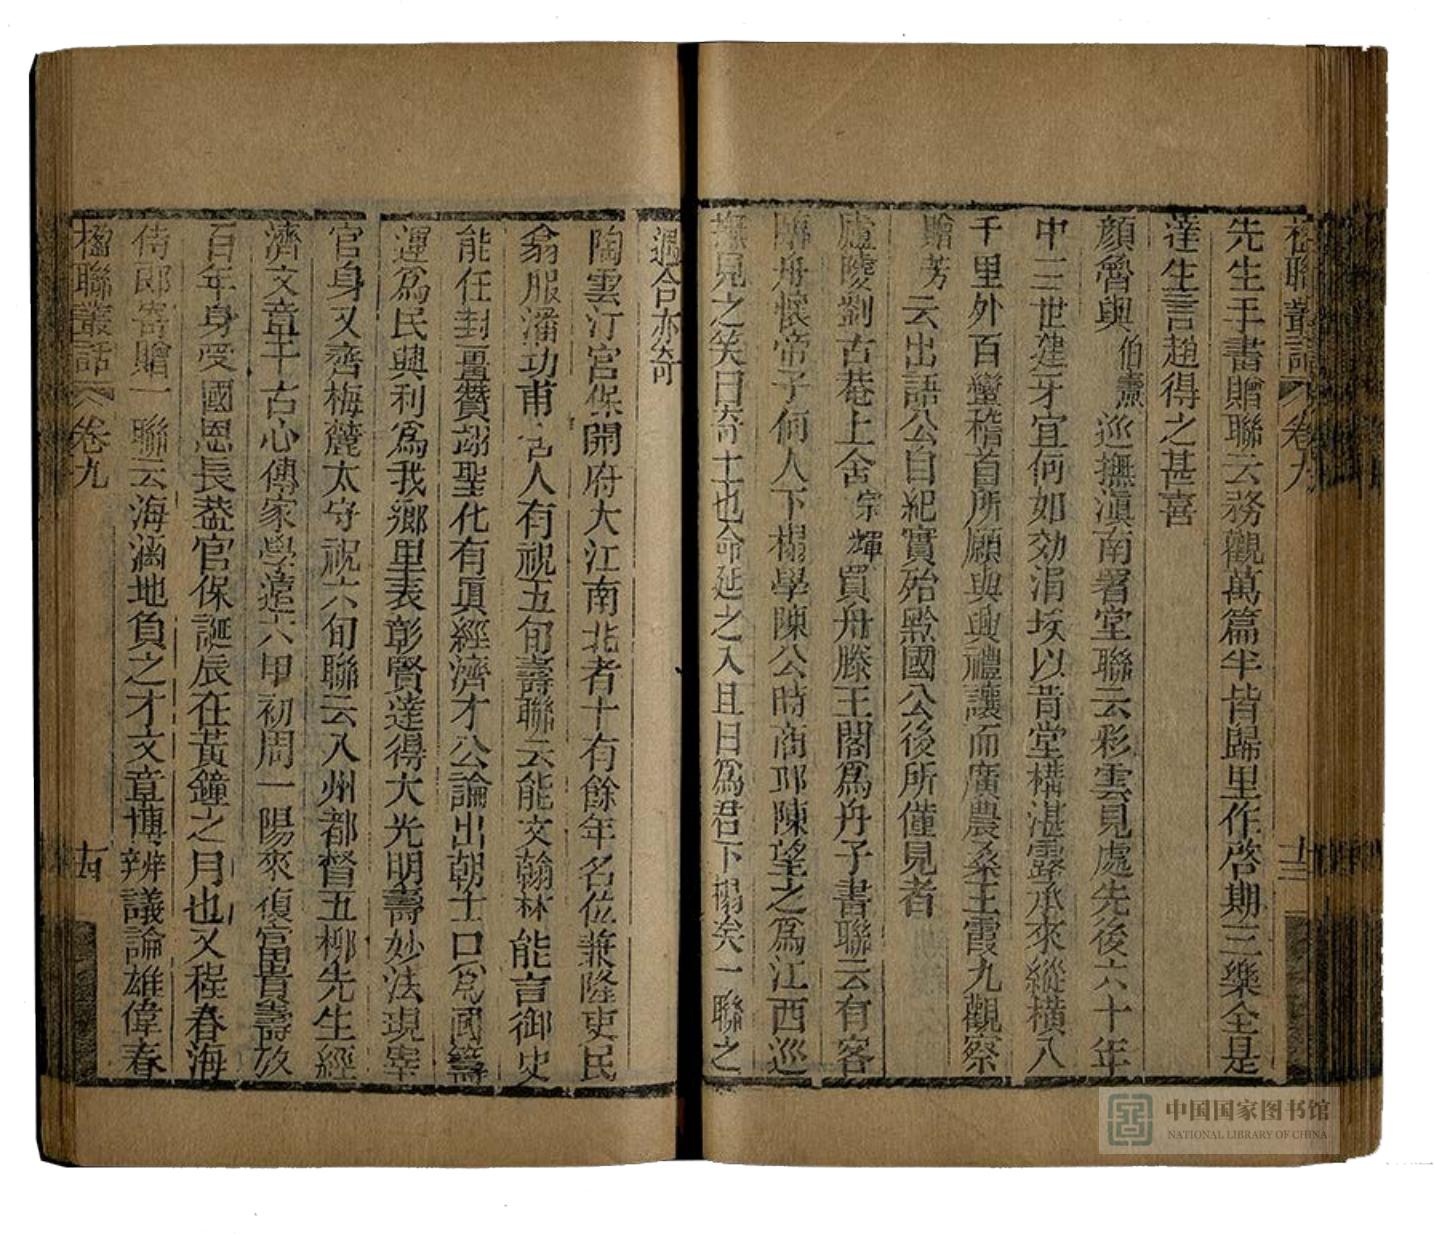 楹聯叢話 卷九 十三
先生手書贈聯云務觀萬篇半皆歸里作啓期三樂全是
達生言趙得之甚喜
顏魯輿伯燾巡撫滇南署堂聯云彩雲見處先後六十年
中三世建牙宜何如効涓埃以肯堂構湛露承來縱橫八
千里外百蠻稽首所願與興禮讓而廣農桑王霞九觀察
贈芳云出語公自紀實殆黔國公後所僅見者
廬陵劉古菴上舍宗輝買舟滕王閣爲舟子書聯云有客
臨舟懷帝子何人下榻學陳公時商邱陳望之爲江西巡
撫見之笑曰奇士也命延之入且曰爲君下榻矣一聯之
遇合亦奇
陶雲汀宮保開府大江南北者十有餘年名位兼隆吏民
翕服潘功甫舍人有祝五旬壽聯云能文翰林能言御史
能任封疆贊翊聖化有眞經濟才公論出朝士口爲國籌
運爲民興利爲我鄉里表彰賢達得大光明壽妙法現宰
官身又齊梅麓太守祝六旬聯云八州都督五柳先生經
濟文章千古心傳家學遠六甲初周一陽來復富貴壽攷
百年身受國恩長葢宮保誕辰在黃鐘之月也又程春海
侍郎寄贈一聯云海涵地負之才文章博辨議論雄偉春
楹聯叢話 卷九 十四